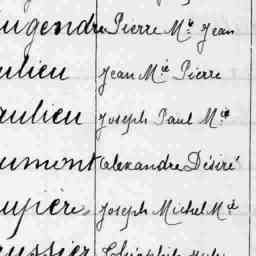 ugendre Pierre Mie Jean
ulieu Jean Mie Pierre
aulieu Joseph Paul Mie
umont Alexandre Désiré
upière Joseph Michel Mie
aussier Théophile